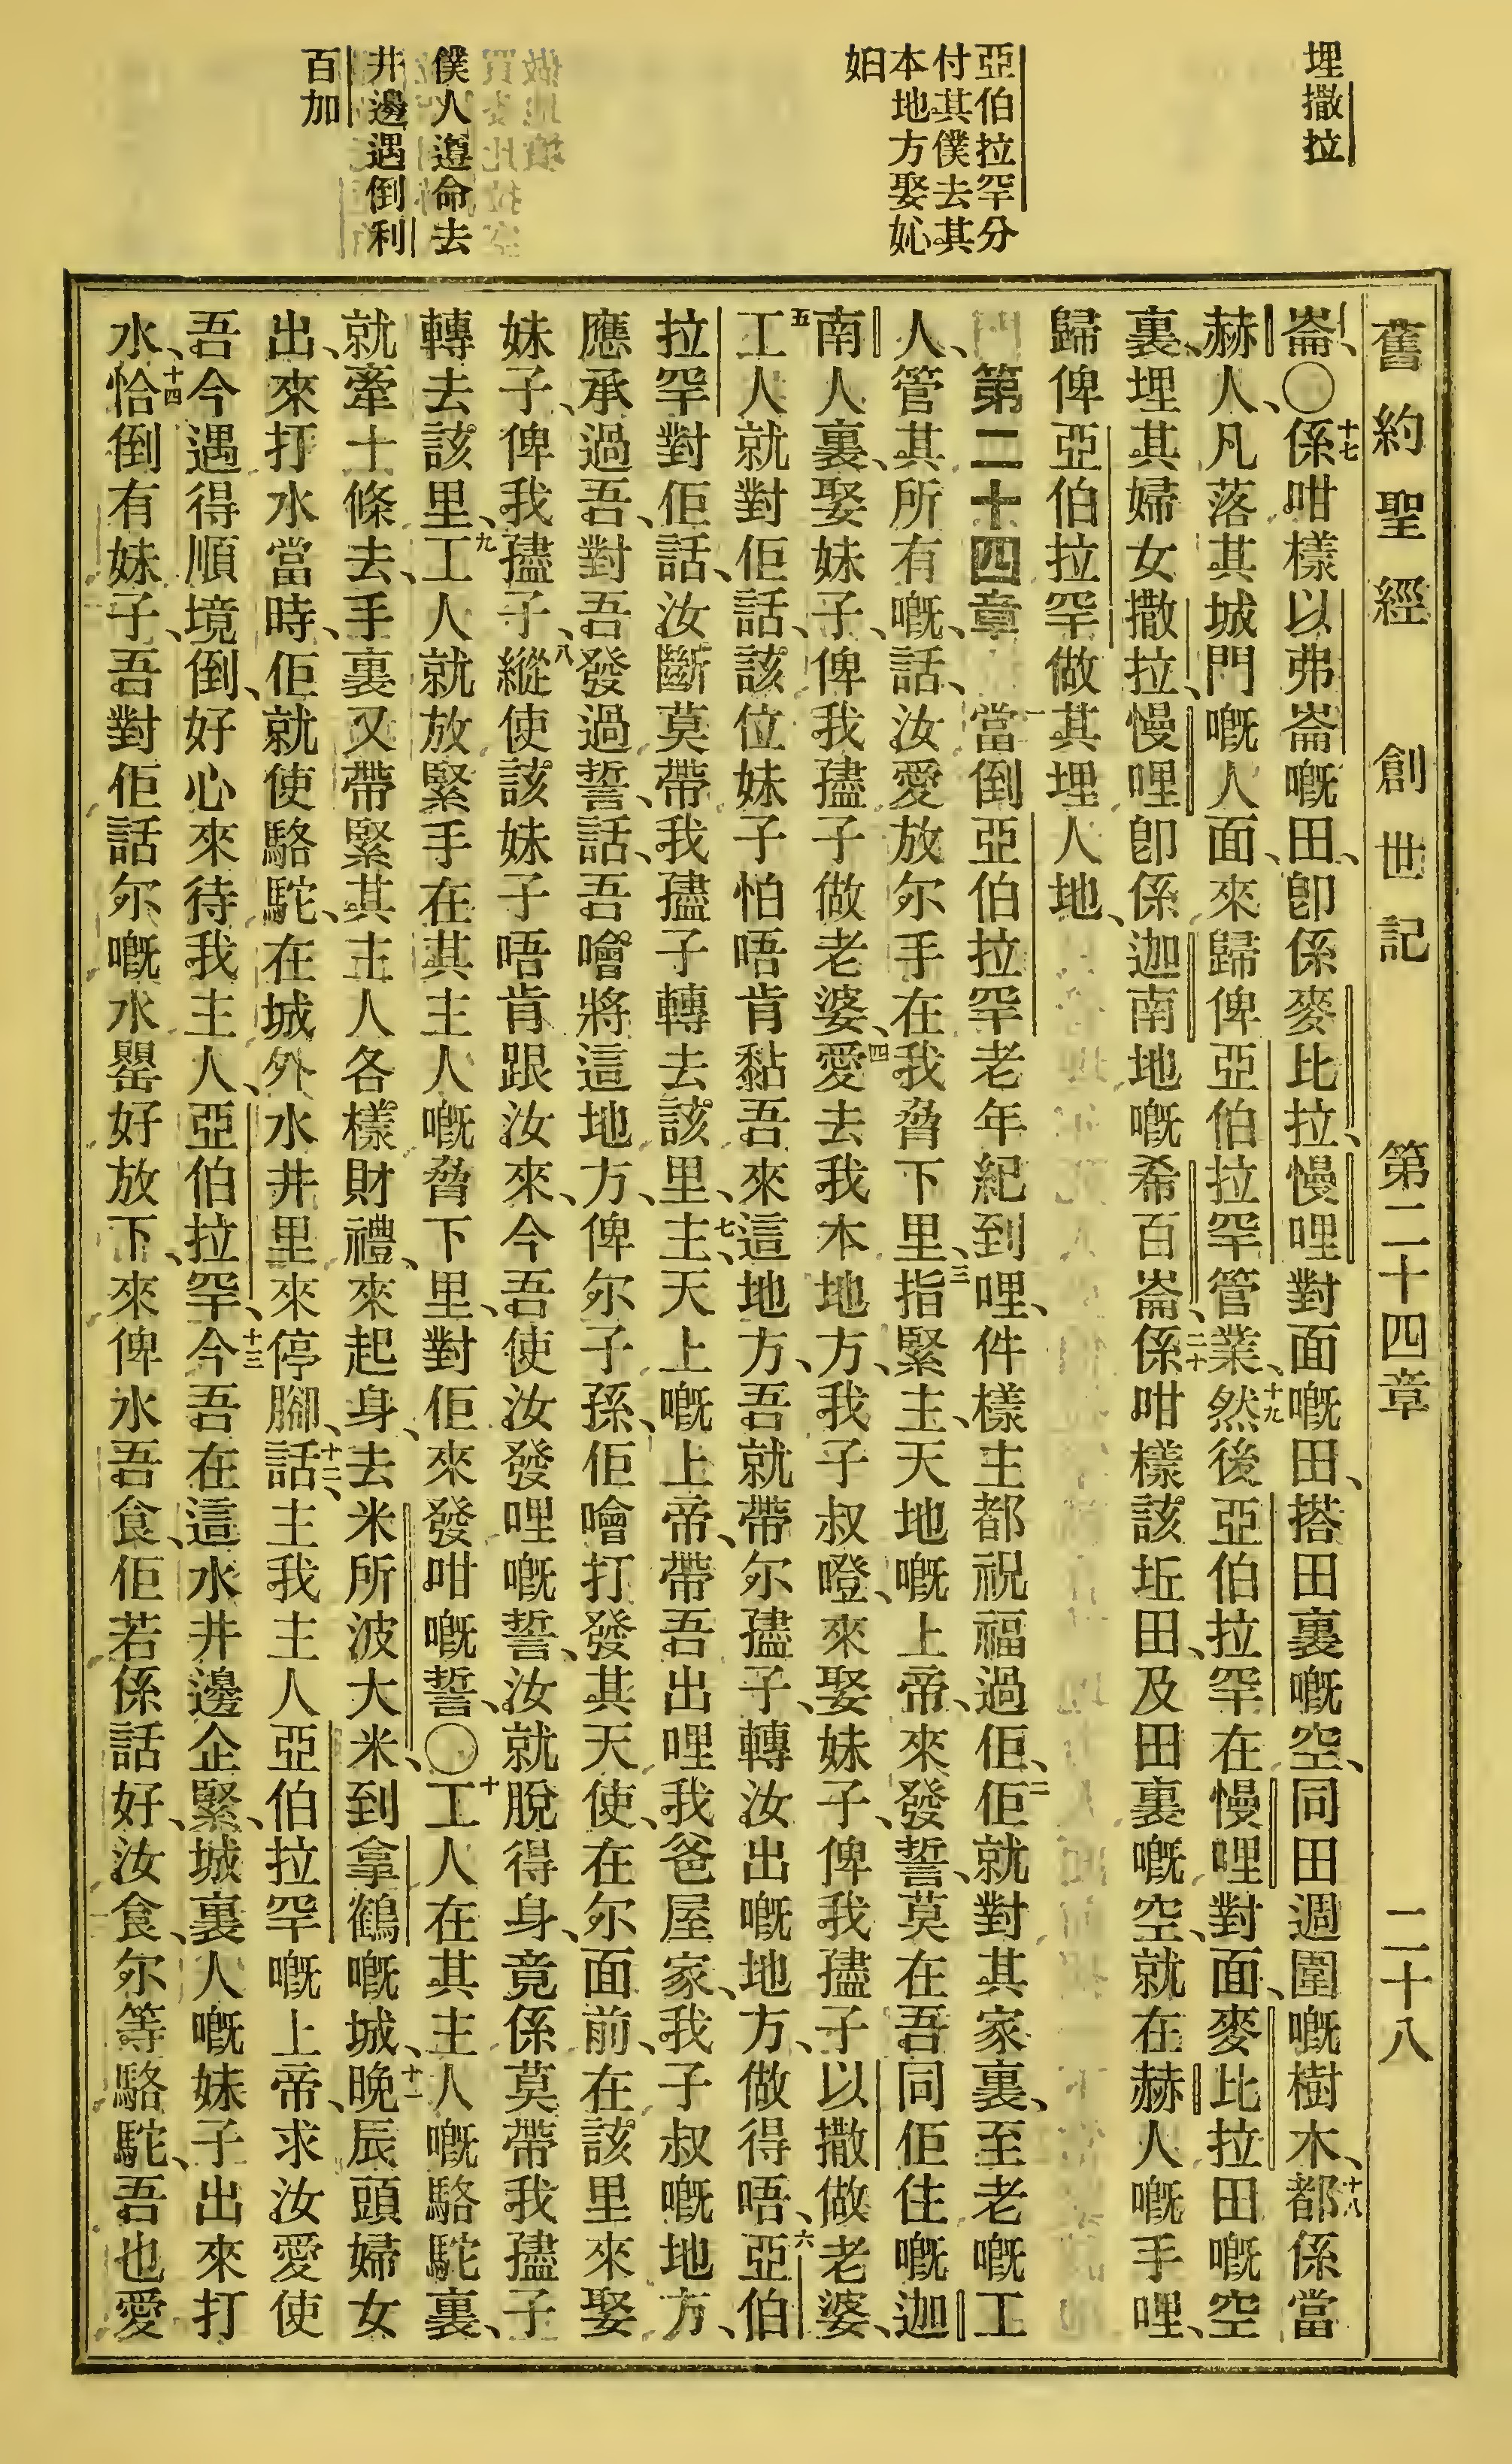 埋撒拉
亞伯拉罕分
付其僕去其
本地方娶妣
妇
僕人遵命去
井邊遇倒利
百加
舊約聖經 創世記 第二十四章 二十八
崙、〇十七係咁樣以弗崙嘅田、卽係麥比拉、慢哩對面嘅田、搭田裏嘅空、同田週圍嘅樹木、十八都係當
赫人、凡落其城門嘅人面、來歸俾亞伯拉罕管業、十九然後亞伯拉罕在慢哩對面、麥比拉田嘅空
裏、埋其婦女撒拉、慢哩卽係迦南地嘅希百崙、二十係咁樣該坵田、及田裏嘅空、就在赫人嘅手哩、
歸俾亞伯拉罕做其埋人地、
第二十四章 一當倒亞伯拉罕老年紀到哩、件樣主都祝福過佢、二佢就對其家裏、至老嘅工
人、管其所有嘅、話、汝愛放尔手在我脅下里、三指緊主、天地嘅上帝、來發誓、莫在吾同佢住嘅迦
南人裏、娶妹子、俾我孻子做老婆、四愛去我本地方、我子叔噔、來娶妹子、俾我孻子以撒做老婆、
五工人就對佢話、該位妹子怕唔肯黏吾來這地方、吾就帶尔孻子、轉汝出嘅地方、做得唔、六亞伯
拉罕對佢話、汝斷莫帶我孻子轉去該里、七主、天上嘅上帝、帶吾出哩我爸屋家、我子叔嘅地方、
應承過吾、對吾發過誓、話、吾噲將這地方、俾尔子孫、佢噲打發其天使、在尔面前、在該里來娶
妹子、俾我孻子、八縱使該妹子唔肯跟汝來、今吾使汝發哩嘅誓、汝就脫得身、竟係莫帶我孻子
轉去該里、九工人就放緊手在其主人嘅脅下里、對佢來發咁嘅誓、〇十工人在其主人嘅駱駝裏、
就牽十條去、手裏又帶緊其主人各樣財禮、來起身、去米所波大米、到拿鶴嘅城、十一晚辰頭婦女
出、來打水當時、佢就使駱駝、在城外水井里來停腳、十二話、主我主人亞伯拉罕嘅上帝、求汝愛使
吾今遇得順境倒、好心來待我主人、亞伯拉罕、十三今吾在這水井邊企緊、城裏人嘅妹子出來打
水、十四恰倒有妹子、吾對佢話尔嘅水罌好放下、來俾氷吾食、佢若係話好、汝食、尔等駱駝、吾也愛